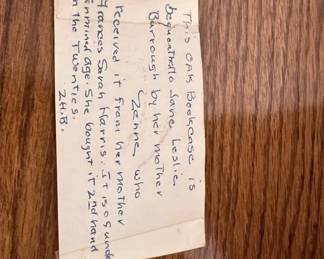 This OAK Bookcase is
bequeathed to Jane Leslie
Burrough by her mother
Zenne, who
received it from her mother
Frances Sarah Harris. It is of unde
ermined age. She bought it 2nd hand
n the Twenties.
Z.H.B.